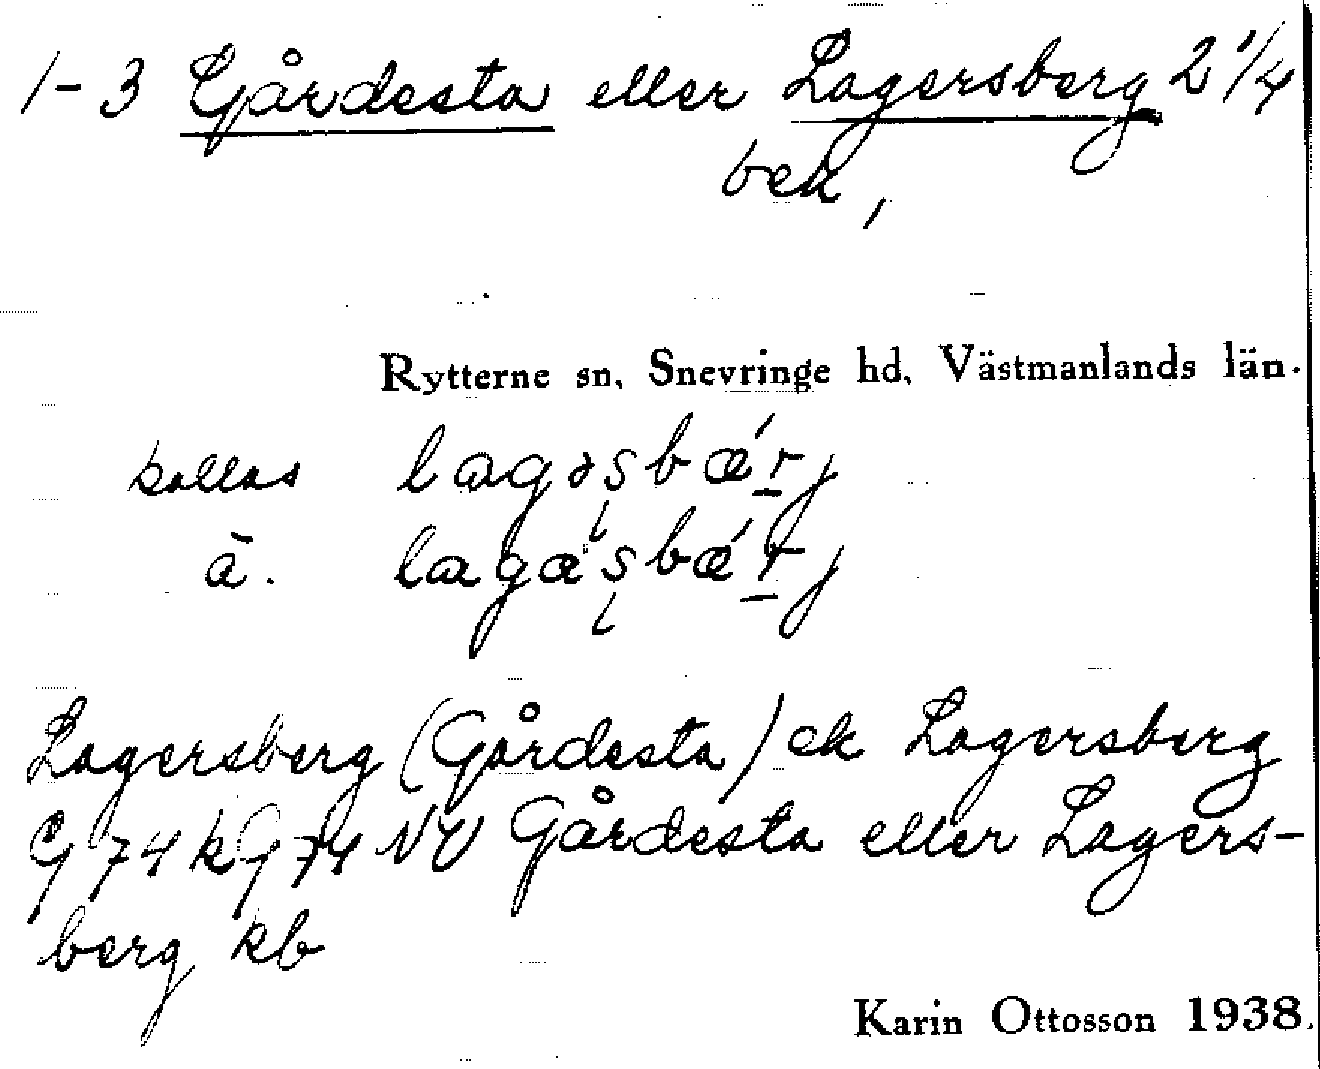 1-3 Gårdesta eller Lagersberg 2 1/4
bek,
Rytterne sn, Snevringe hd, Västmanlands län.
kallas lagəʂbǽrj
ā. lagæʂbǽrj
Lagersberg (Gårdesta) ek Lagersberg
G 74 k G 74 NV Gårdesta eller Lagers-
berg kb
Karin Ottosson 1938.